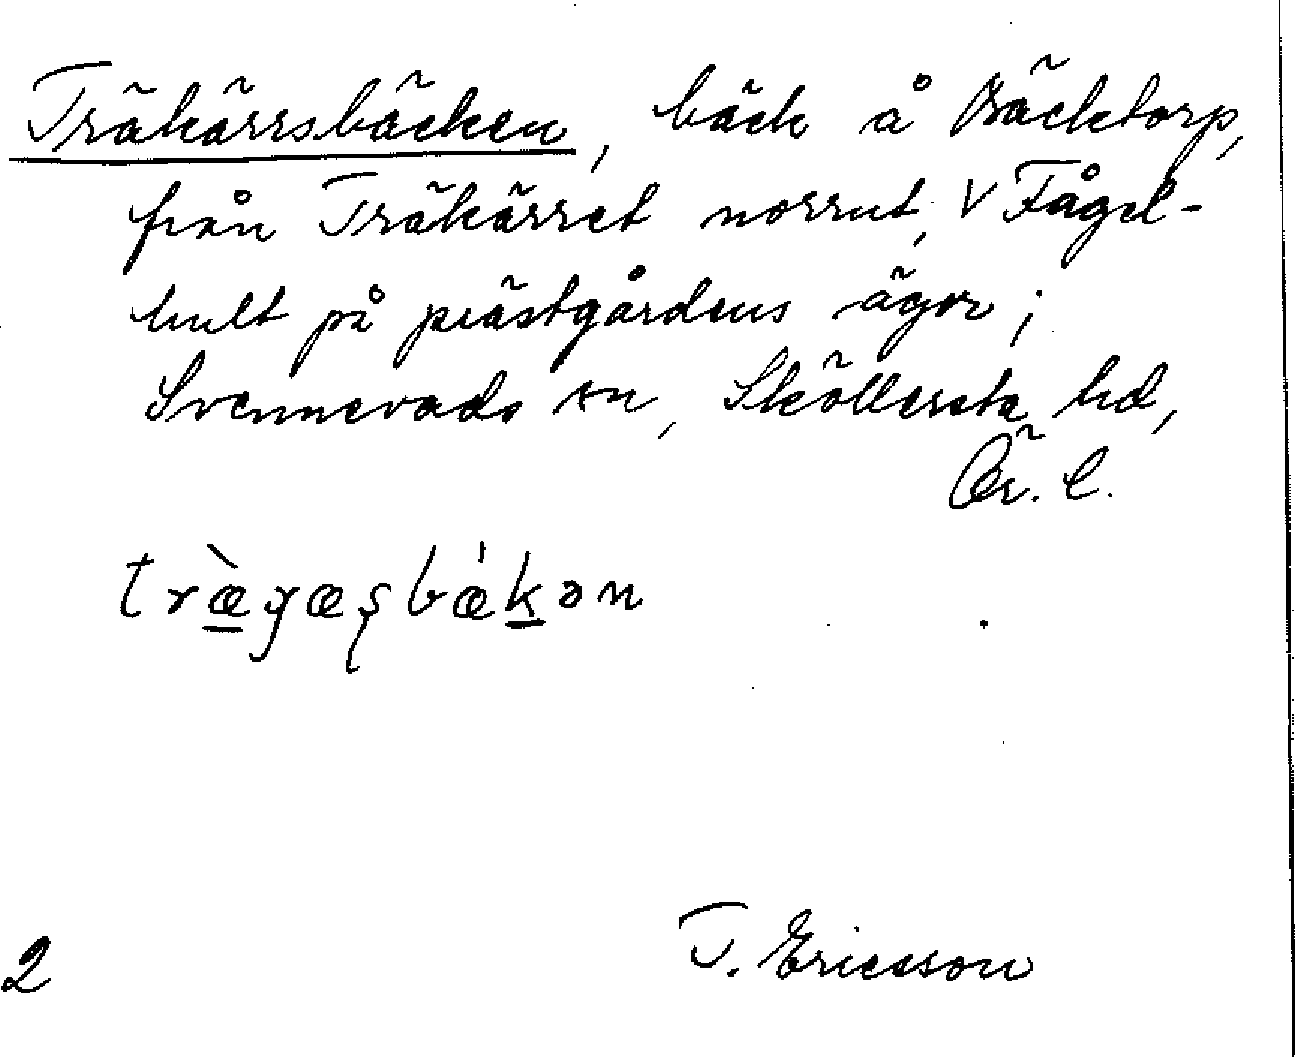 Träkärrsbäcken, bäck å Bäcktorp,
från Träkärret norrut, V Fågel-
hult på prästgårdens ägor;
Svennevads sn, Sköllersta hd,
Ör. l.
træ̀gæșbækən
2
T. Ericsson